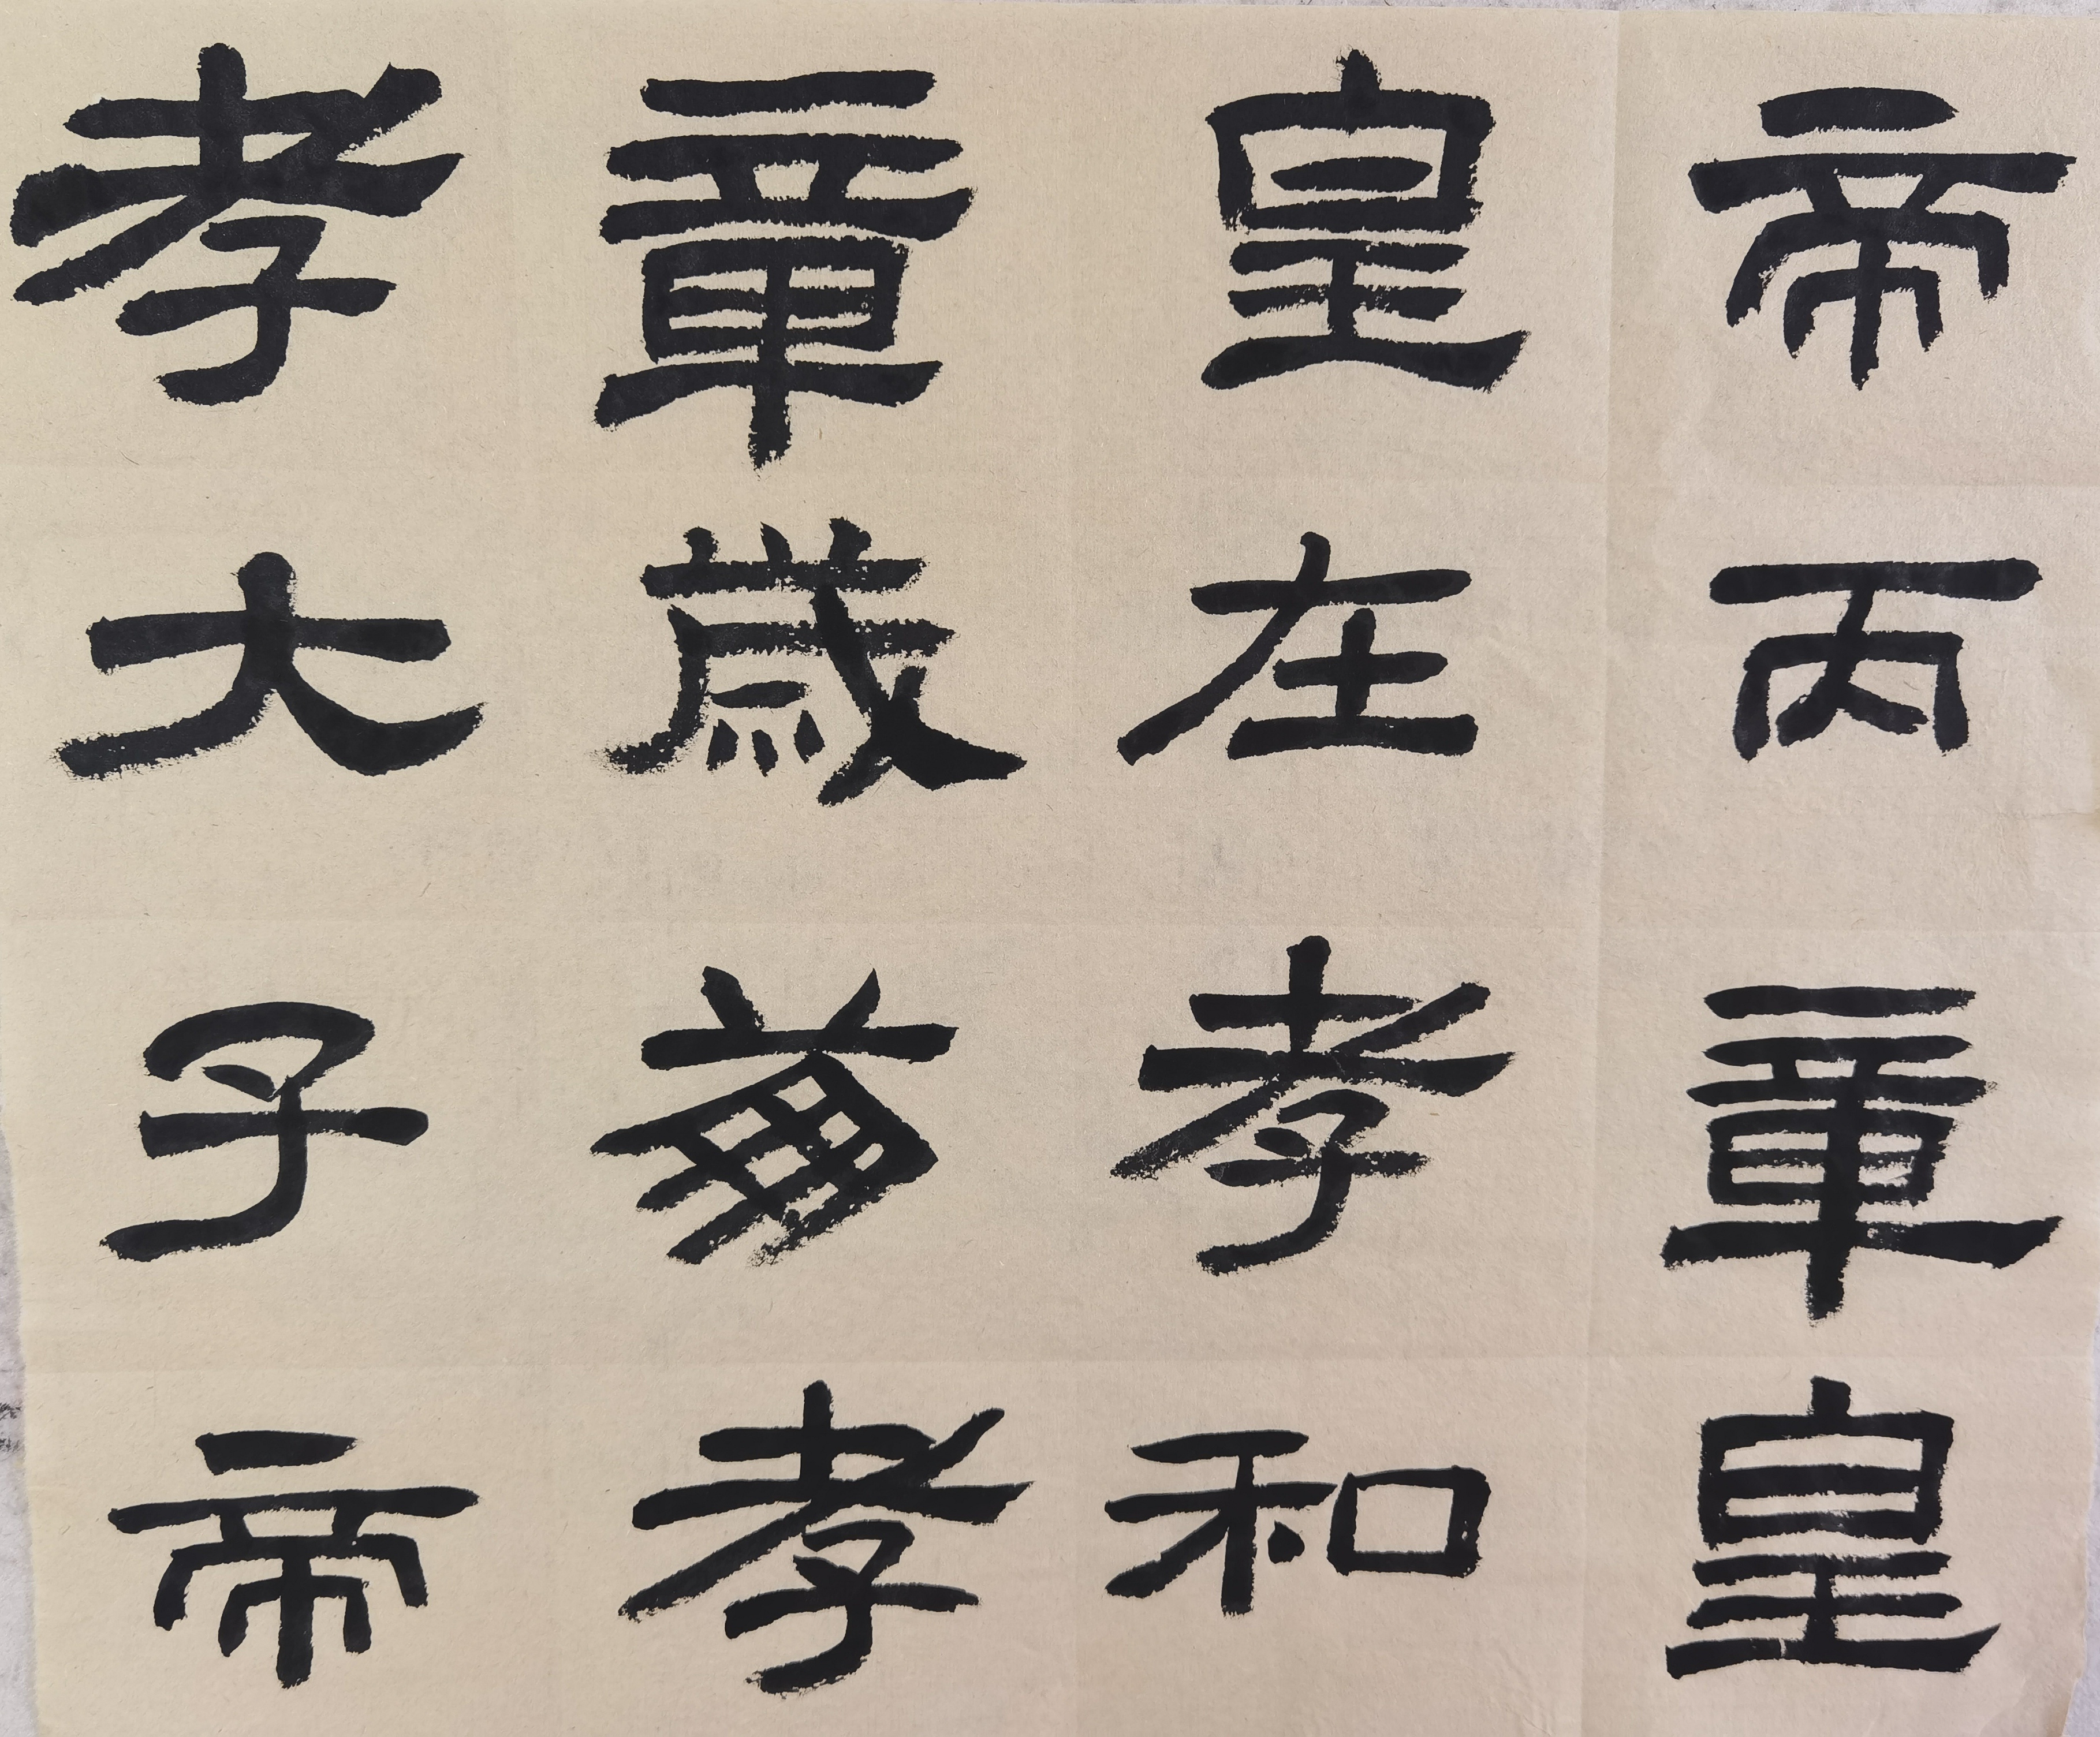 孝章皇帝
大歳在丙
子萠孝章
帝孝和皇